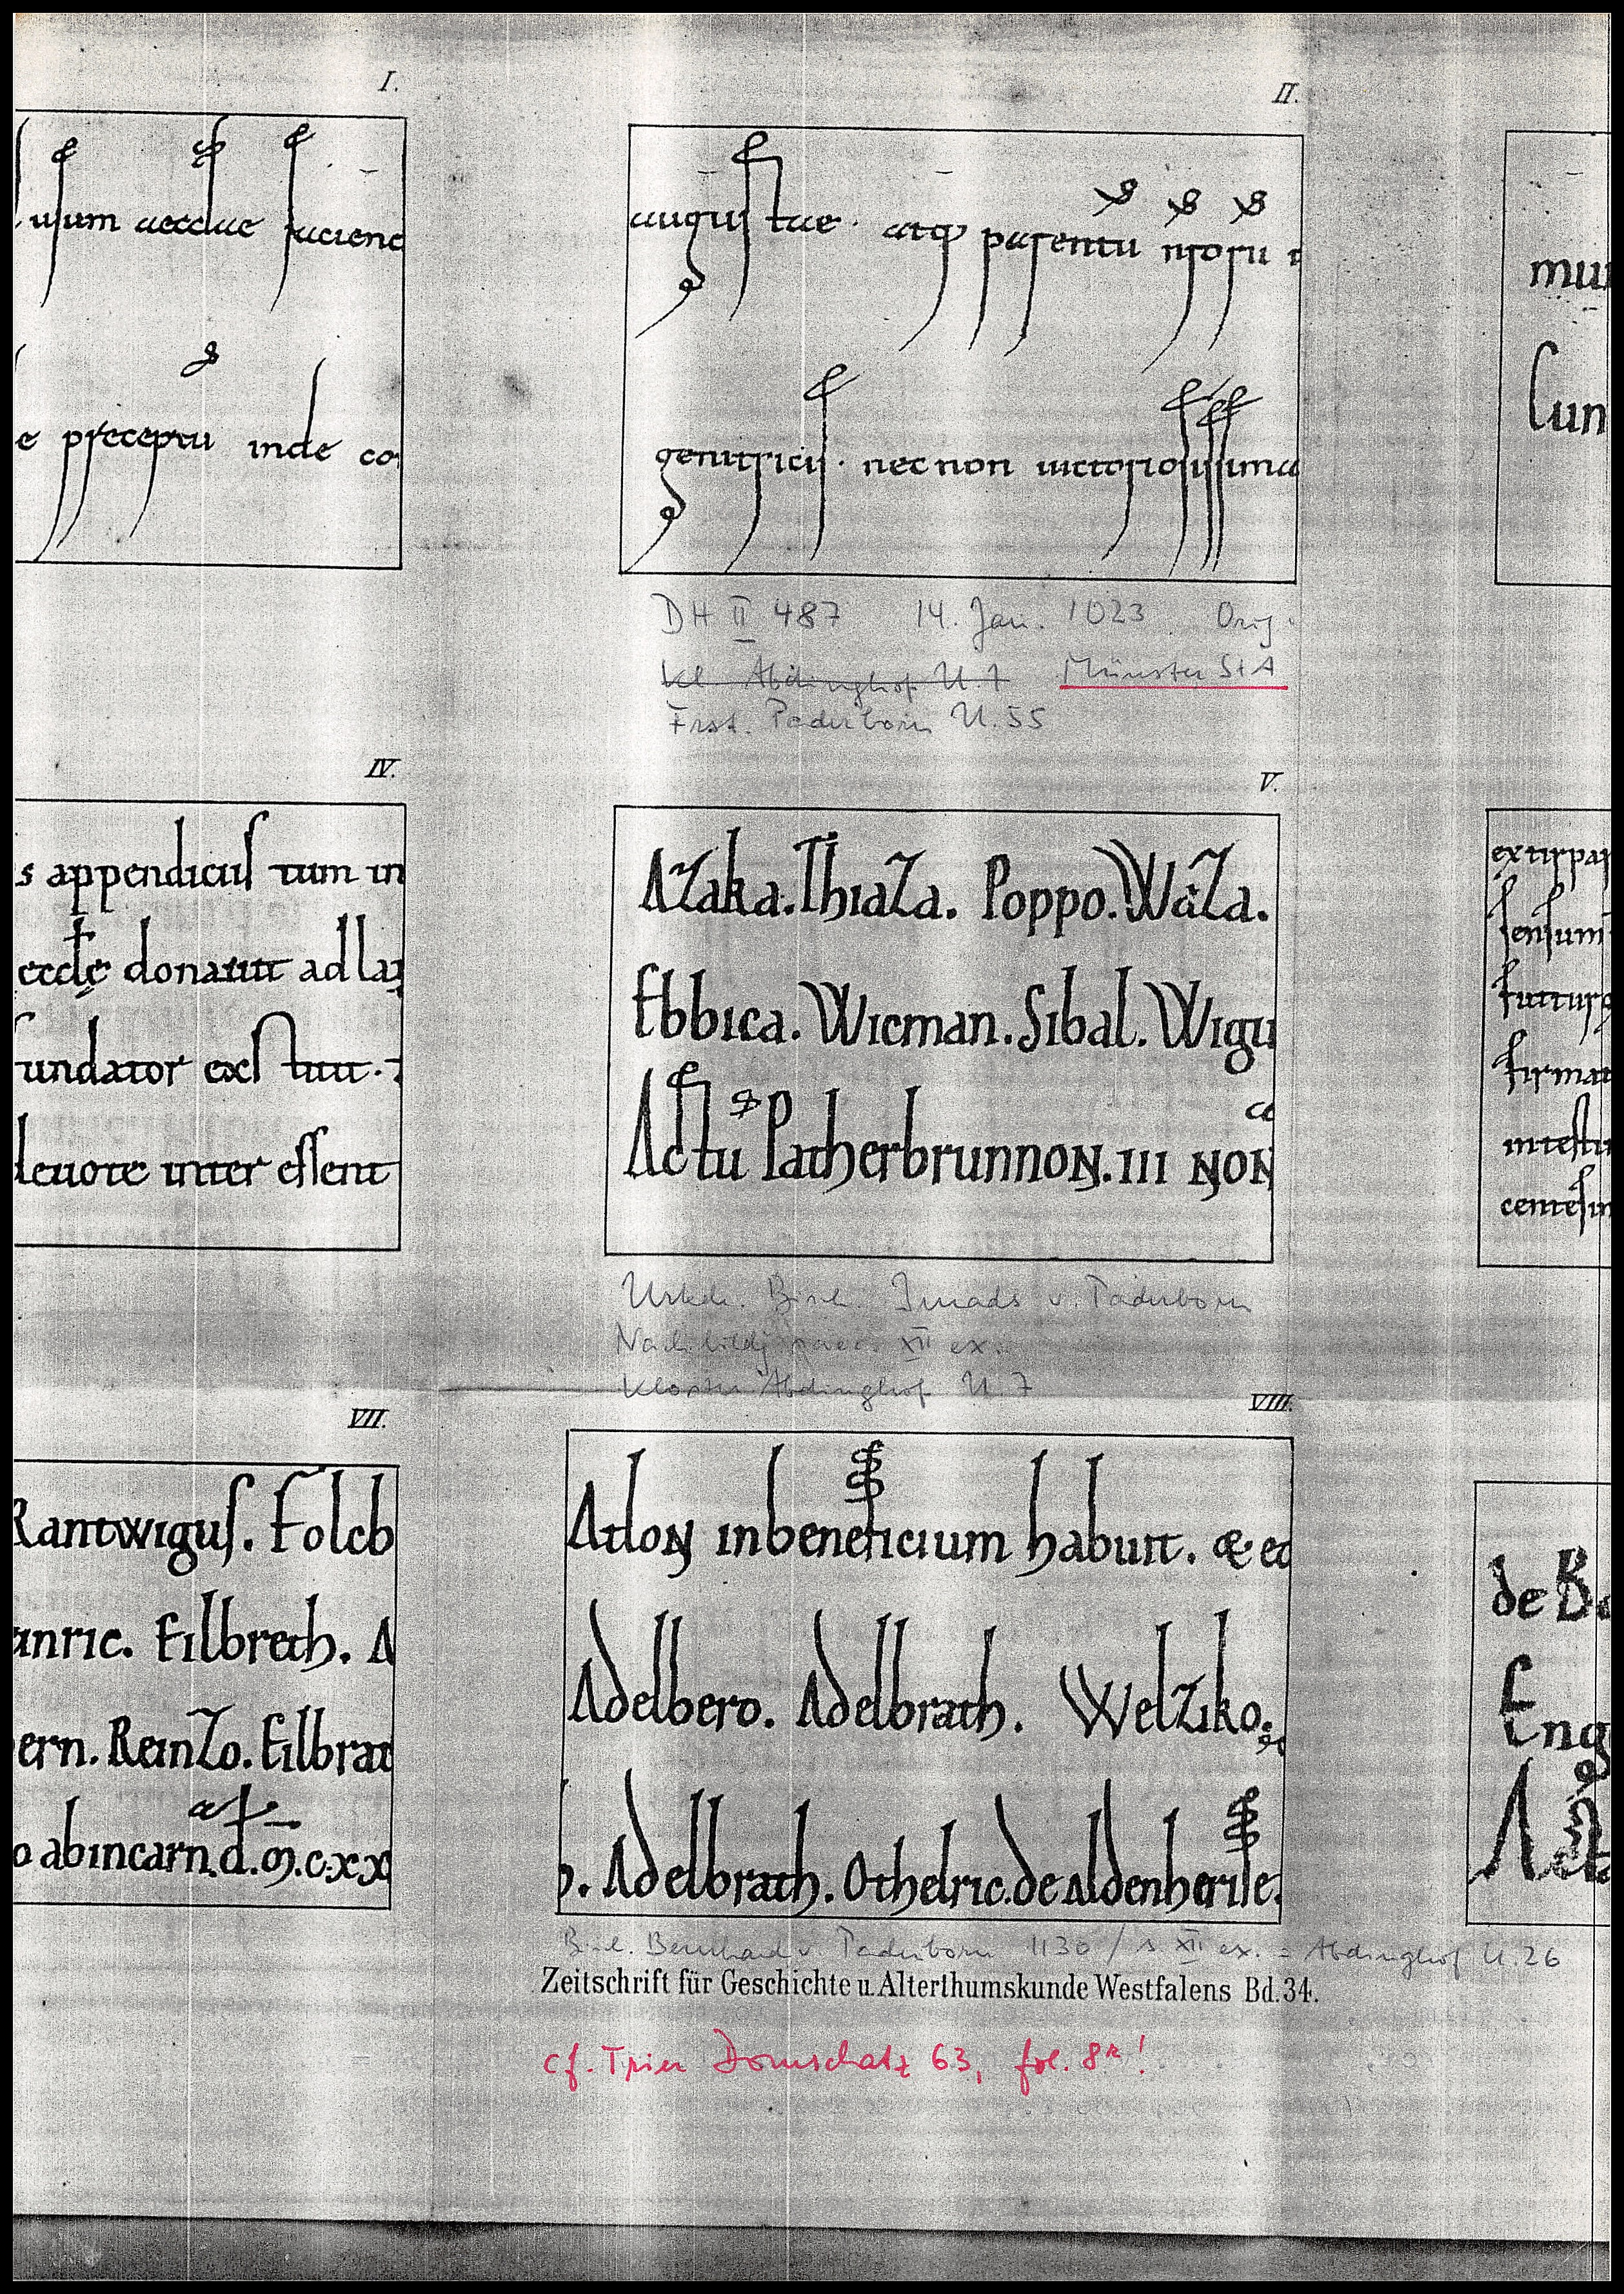 I.
usum aecclae faciend
e preceptu inde co
II.
augustae. atq parentu nrorũ
genitricis. necnon uictoriosissima
mu
Cun
DH II 487 14. Jan. 1023 Orig.
Kl. Abdinghof U. 7 Münster StA
Frst. Paderborn U. 55
IV.
s appendiciis tum in
eccle donauit ad la
undator exstitit.
deuote inter essent
V.
AZaka. ThiaZa. Poppo. WaZa.
Ebbica. Wicman. Sibal. Wigu
Actu Patherbrunnon. III NON
extirpa
sensum
futturo
firmat
intestu
centesim
Urkde. Bisch. Imads v. Paderborn
Nachbildg saec. XII ex.
Kloster Abdinghof U. 7
VII.
Rantwigus. Folcb
inric. Eilbrath. A
ern. ReinZo. Eilbrat
o abincarn.d.m.c.xx
VIII.
Atlon inbeneficium habuit. & ec
Adelbero. Adelbrath. WelZiko.
. Adelbrath. Othelric. de aldenherise.
de Ba
Eng
A
Bisch. Bernhard v. Paderborn 1130 / s. XII ex. = Abdinghof U. 26
Zeitschrift für Geschichte u. Alterthumskunde Westfalens Bd. 34.
cf. Trier Domschatz 63, fol. 8r!